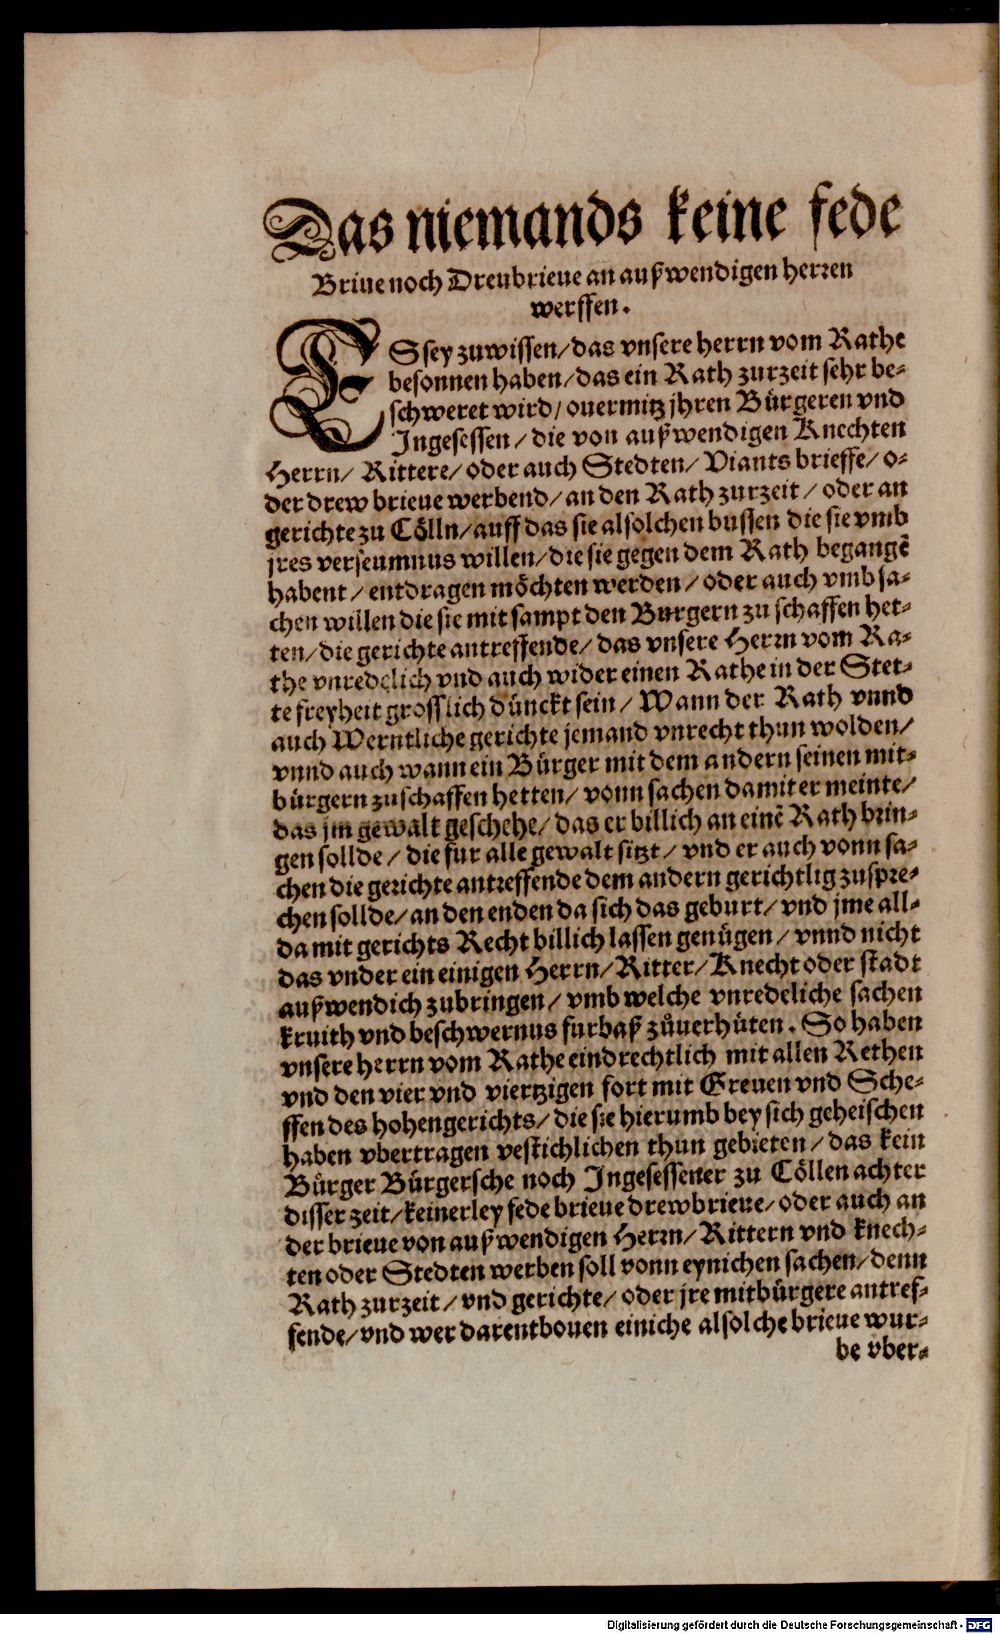 Das niemands keine fede
Briue noch Dreubrieue an außwendigen herren
werffen.
ES sey zuwissen/das vnsere herrn vom Rathe
besonnen haben/das ein Rath zurzeit sehr be-
schweret wird/ouermitz jhren Bürgeren vnd
Ingesessen/die von außwendigen Knechten
Herrn/Rittere/oder auch Stedten/Viants brieffe/o-
der drew brieue werbend/an den Rath zurzeit/oder an
gerichte zu Cölln/auff das sie alsolchen bussen die sie vmb
jres verseumnus willen/die sie gegen dem Rath begangē
habent/entdragen möchten werden/oder auch vmb sa-
chen willen die sie mit sampt den Burgern zu schaffen het-
ten/die gerichte antreffende/das vnsere Herrn vom Ra-
the vnredelich vnd auch wider einen Rathe in der Stet-
te freyheit grosslich dünckt sein/Wann der Rath vnnd
auch Werntliche gerichte jemand vnrecht thun wolden/
vnnd auch wann ein Bürger mit dem andern seinen mit-
bürgern zuschaffen hetten/vonn sachen damit er meinte/
das jm gewalt geschehe/das er billich an einē Rath brin-
gen sollde/die fur alle gewalt sitzt/vnd er auch vonn sa-
chen die gerichte antreffende dem andern gerichtlig zuspre-
chen sollde/an den enden da sich das geburt/vnd jme all-
da mit gerichts Recht billich lassen genügen/vnnd nicht
das vnder ein einigen Herrn/Ritter/Knecht oder stadt
außwendich zubringen/vmb welche vnredeliche sachen
kruith vnd beschwernus furbaß zůuerhüten. So haben
vnsere herrn vom Rathe eindrechtlich mit allen Rethen
vnd den vier vnd viertzigen fort mit Greuen vnd Sche-
ffen des hohengerichts/die sie hierumb bey sich geheischen
haben vbertragen vestichlichen thun gebieten/das kein
Bürger Bürgersche noch Ingesessener zu Cöllen achter
disser zeit/keinerley fede brieue drewbrieue/oder auch an
der brieue von außwendigen Herrn/Rittern vnd knech-
ten oder Stedten werben soll vonn eynichen sachen/denn
Rath zurzeit/vnd gerichte/oder jre mitbürgere antref-
fende/vnd wer darentbouen einiche alsolche brieue wur-
be vber-
Digitalisierung gefördert durch die Deutsche Forschungsgemeinschaft - DFG